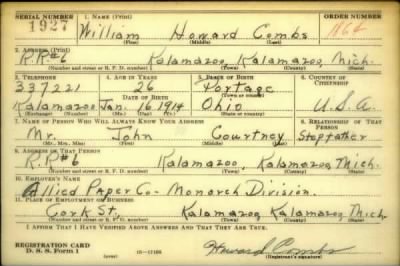 SERIAL NUMBER 1. NAME (Print) ORDER NUMBER
1927 William Howard Combs 1864
(First) (Middle) (Last)
2. ADDRESS (Print)
R.R.#6 Kalamazoo, Kalamazoo, Mich.
(Number and street or R. F. D. number) (Town) (County) (State)
3. TELEPHONE 4. AGE IN YEARS 5. PLACE OF BIRTH 6. COUNTRY OF CITIZENSHIP
337221 26 Portage
DATE OF BIRTH (Town or county)
Kalamazoo Jan. 16, 1914 Ohio U.S.A.
(Exchange) (Mo.) (Day) (Yr.) (State or country)
7. NAME OF PERSON WHO WILL ALWAYS KNOW YOUR ADDRESS 8. RELATIONSHIP OF THAT PERSON
Mr. John Courtney Stepfather
(Mr., Mrs., Miss) (First) (Middle) (Last)
9. ADDRESS OF THAT PERSON
R.R.#6 Kalamazoo, Kalamazoo, Mich.
(Number and street or R. F. D. number) (Town) (County) (State)
10. EMPLOYER'S NAME
Allied Paper Co- Monarch Division.
11. PLACE OF EMPLOYMENT OR BUSINESS
Cork St. Kalamazoo, Kalamazoo, Mich
(Number and street or R. F. D. number) (Town) (County) (State)
I AFFIRM THAT I HAVE VERIFIED ABOVE ANSWERS AND THAT THEY ARE TRUE.
REGISTRATION CARD
D. S. S. Form 1 (over) Howard Combs
(Registrant's signature)